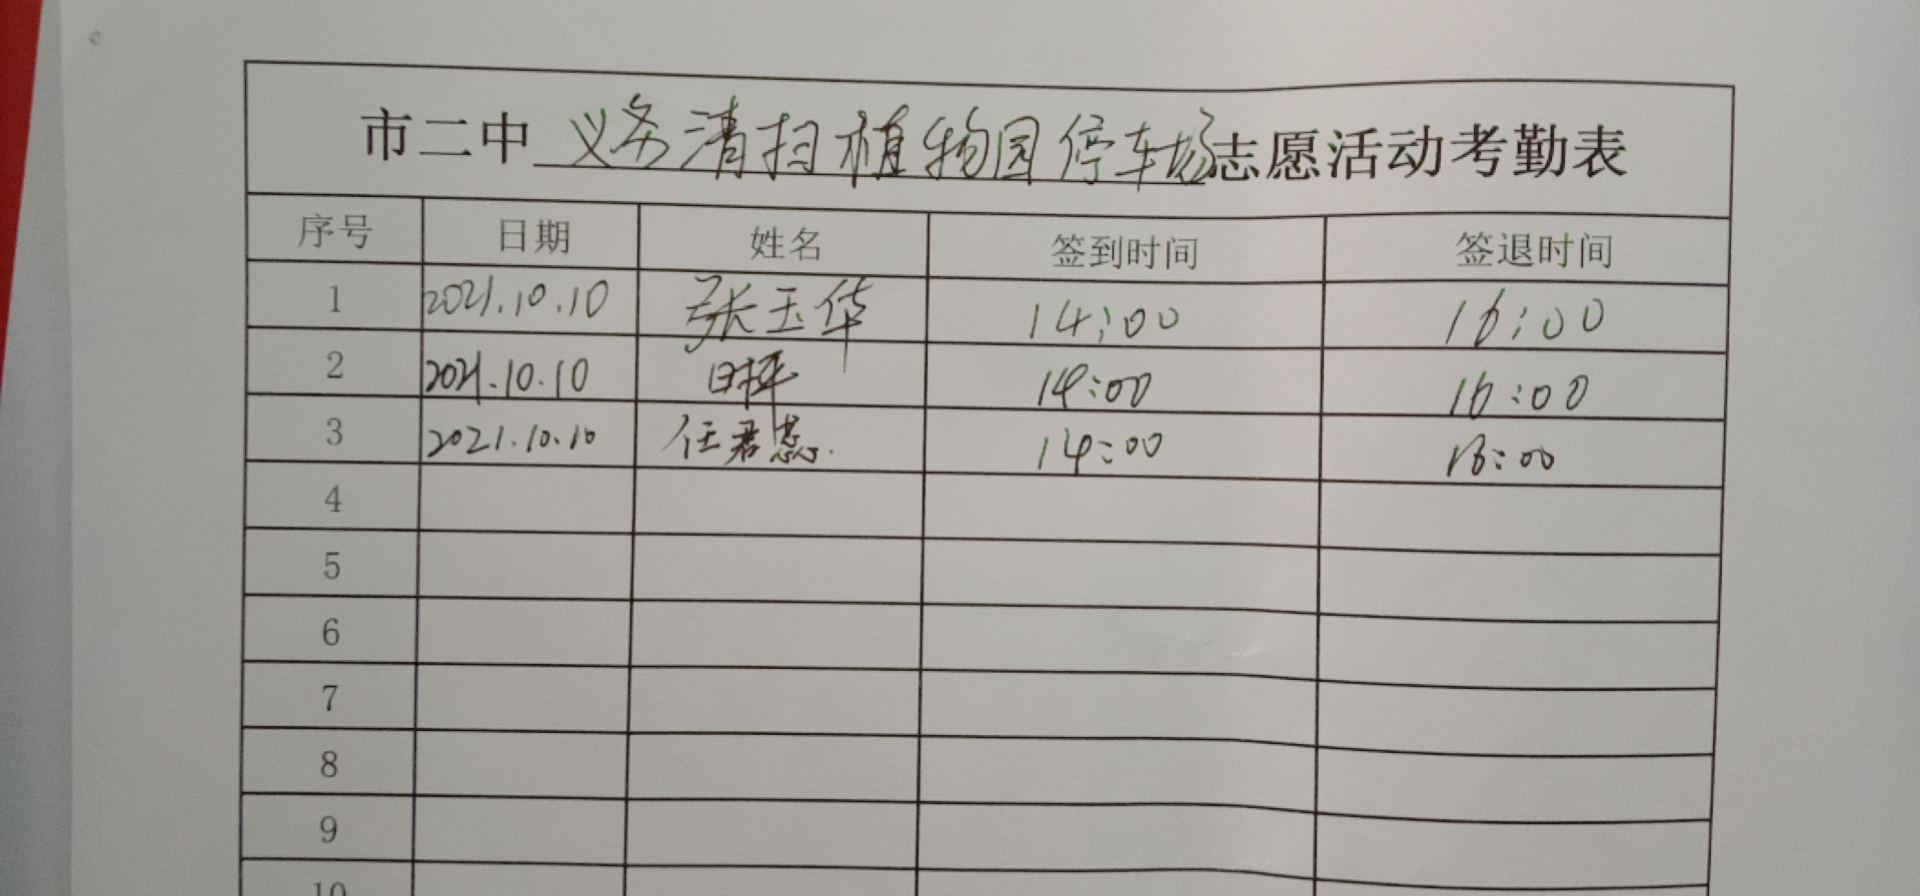 市二中义务清扫植物园停车场志愿活动考勤表
序号 日期 姓名 签到时间 签退时间
1 2021.10.10 张玉华 14:00 16:00
2 2021.10.10 14:00 16:00
3 2021.10.10 任君慧 14:00 16:00
4
5
6
7
8
9
10